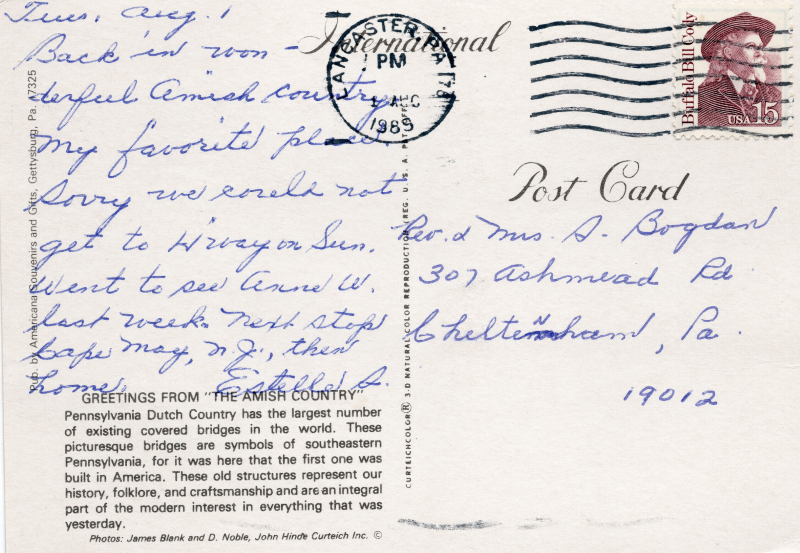 Tues, Aug. 1
Back in won-
derful Amish country,
my favorite place.
Sorry we could not
get to H'way on Sun.
Went to see Anne W.
last week. Next stop
Cape May, N.J., then
home. Estelle S.
GREETINGS FROM "THE AMISH COUNTRY"
Pennsylvania Dutch Country has the largest number
of existing covered bridges in the world. These
picturesque bridges are symbols of southeastern
Pennsylvania, for it was here that the first one was
built in America. These old structures represent our
history, folklore, and craftsmanship and are an integral
part of the modern interest in everything that was
yesterday.
Photos: James Blank and D. Noble, John Hinde Curteich Inc. ©
Pub. by Americana Souvenirs and Gifts, Gettysburg, Pa. 17325
CURTEICHCOLOR® 3-D NATURAL COLOR REPRODUCTION (REG. U.S.A. PAT. OFFICE
International
LANCASTER, PA 176
PM
1 AUG
1989
Buffalo Bill Cody
USA 15
Post Card
Rev. & Mrs. S. Bogdan
307 Ashmead Rd
Cheltenham, Pa.
19012